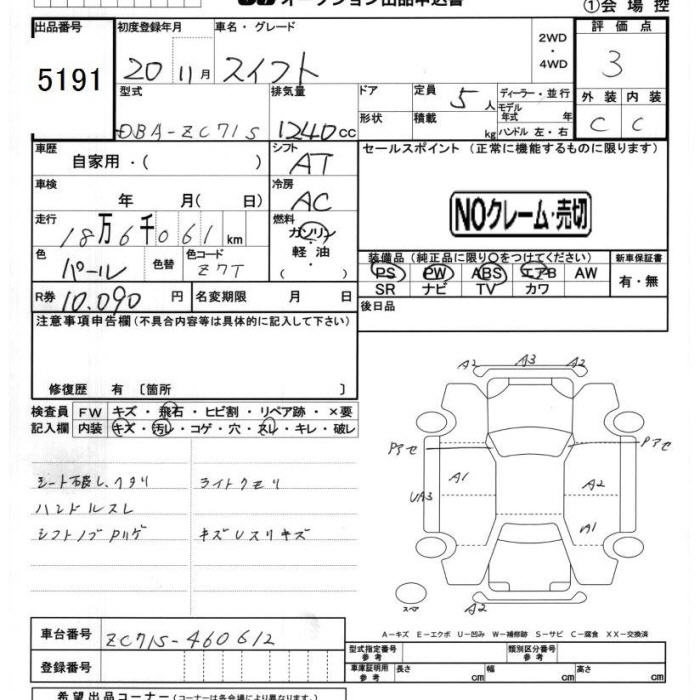 オークション出品申込書
①会場控
出品番号 初度登録年月 車名・グレード 2WD・4WD 評価点
5191 20 11月 スイフト 3
型式 排気量 ドア 定員 5人 ディーラー・並行 外装 内装
DBA-ZC71S 1240cc 形状 積載 kg モデル年式 年 ハンドル 左・右 C C
車歴 自家用・( ) シフト AT セールスポイント(正常に機能するものに限ります)
車検 年 月( 日) 冷房 AC
NOクレーム・売切
走行 18万6千061km 燃料 ガソリン 軽油・( )
色 パール 色替 色コード Z7T
装備品(純正品に限り○をつけてください) 新車保証書
PS PW ABS エアB AW 有・無
SR ナビ TV カワ
R券 10.090円 名変期限 月 日 後日品
注意事項申告欄(不具合内容等は具体的に記入して下さい)
修復歴 有〔箇所 〕
検査員 FW キズ・飛石・ヒビ割・リペア跡・×要
記入欄 内装 キズ・汚レ・コゲ・穴・スレ・キレ・破レ
シート破レ、ヘタリ ライトクモリ
ハンドルスレ
シフトノブ ハゲ キズUスリキズ
A2 A3 A2
Pアセ Pアセ
A1 A2
UA3
A1
スペア A2
A-キズ E-エクボ U-凹み W-補修跡 S-サビ C-腐食 XX-交換済
車台番号 ZC71S-460612
型式指定番号 参考 類別区分番号 参考
登録番号 車庫証明用 参考 長さ cm 幅 cm 高さ cm
希望出品コーナー(コーナーは各会場により異なります)